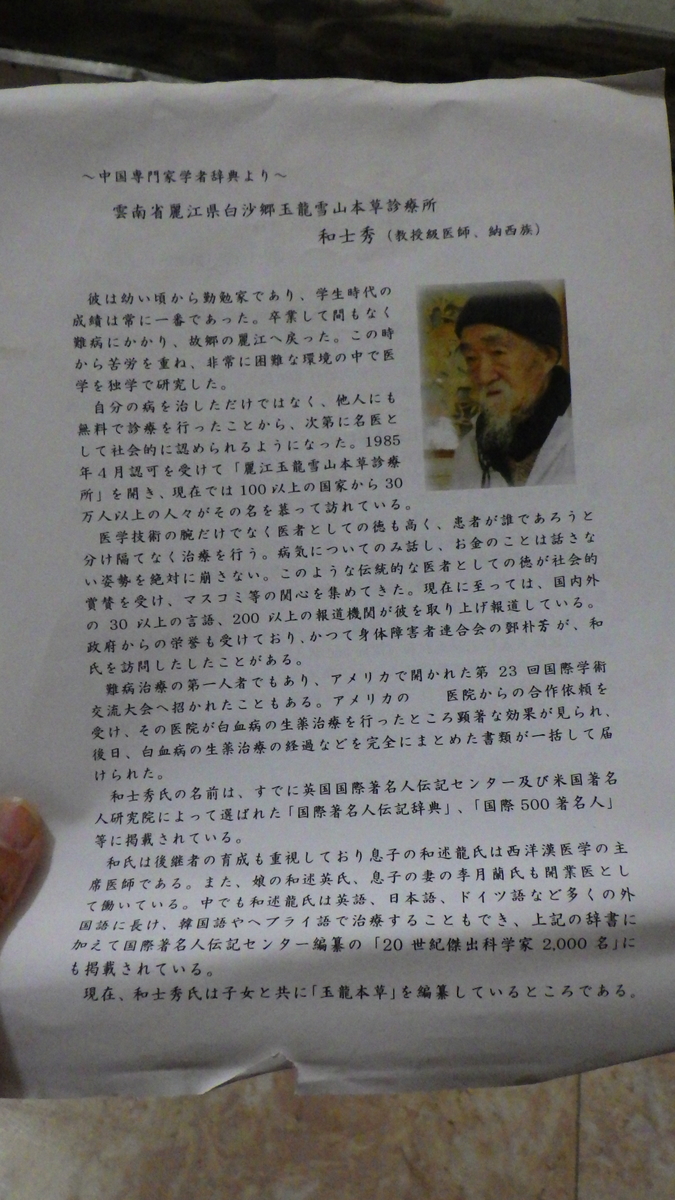 ～中国専門家学者辞典より～
雲南省麗江県白沙郷玉龍雪山本草診療所
和士秀（教授級医師、納西族）
彼は幼い頃から勤勉家であり、学生時代の
成績は常に一番であった。卒業して間もなく
難病にかかり、故郷の麗江へ戻った。この時
から苦労を重ね、非常に困難な環境の中で医
学を独学で研究した。
自分の病を治しただけではなく、他人にも
無料で診療を行ったことから、次第に名医と
して社会的に認められるようになった。1985
年４月認可を受けて「麗江玉龍雪山本草診療
所」を開き、現在では 100 以上の国家から 30
万人以上の人々がその名を慕って訪れている。
医学技術の腕だけでなく医者としての徳も高く、患者が誰であろうと
分け隔てなく治療を行う。病気についてのみ話し、お金のことは話さな
い姿勢を絶対に崩さない。このような伝統的な医者としての徳が社会的
賞賛を受け、マスコミ等の関心を集めてきた。現在に至っては、国内外
の 30 以上の言語、200 以上の報道機関が彼を取り上げ報道している。
政府からの栄誉も受けており、かつて身体障害者連合会の鄧朴芳が、和
氏を訪問したしたことがある。
難病治療の第一人者でもあり、アメリカで開かれた第 23 回国際学術
交流大会へ招かれたこともある。アメリカの　　医院からの合作依頼を
受け、その医院が白血病の生薬治療を行ったところ顕著な効果が見られ、
後日、白血病の生薬治療の経過などを完全にまとめた書類が一括して届
けられた。
和士秀氏の名前は、すでに英国国際著名人伝記センター及び米国著名
人研究院によって選ばれた「国際著名人伝記辞典」、「国際 500 著名人」
等に掲載されている。
和氏は後継者の育成も重視しており息子の和述龍氏は西洋漢医学の主
席医師である。また、娘の和述英氏、息子の妻の李月蘭氏も開業医とし
て働いている。中でも和述龍氏は英語、日本語、ドイツ語など多くの外
国語に長け、韓国語やヘブライ語で治療することもでき、上記の辞書に
加えて国際著名人伝記センター編纂の「20 世紀傑出科学家 2,000 名」に
も掲載されている。
現在、和士秀氏は子女と共に「玉龍本草」を編纂しているところである。